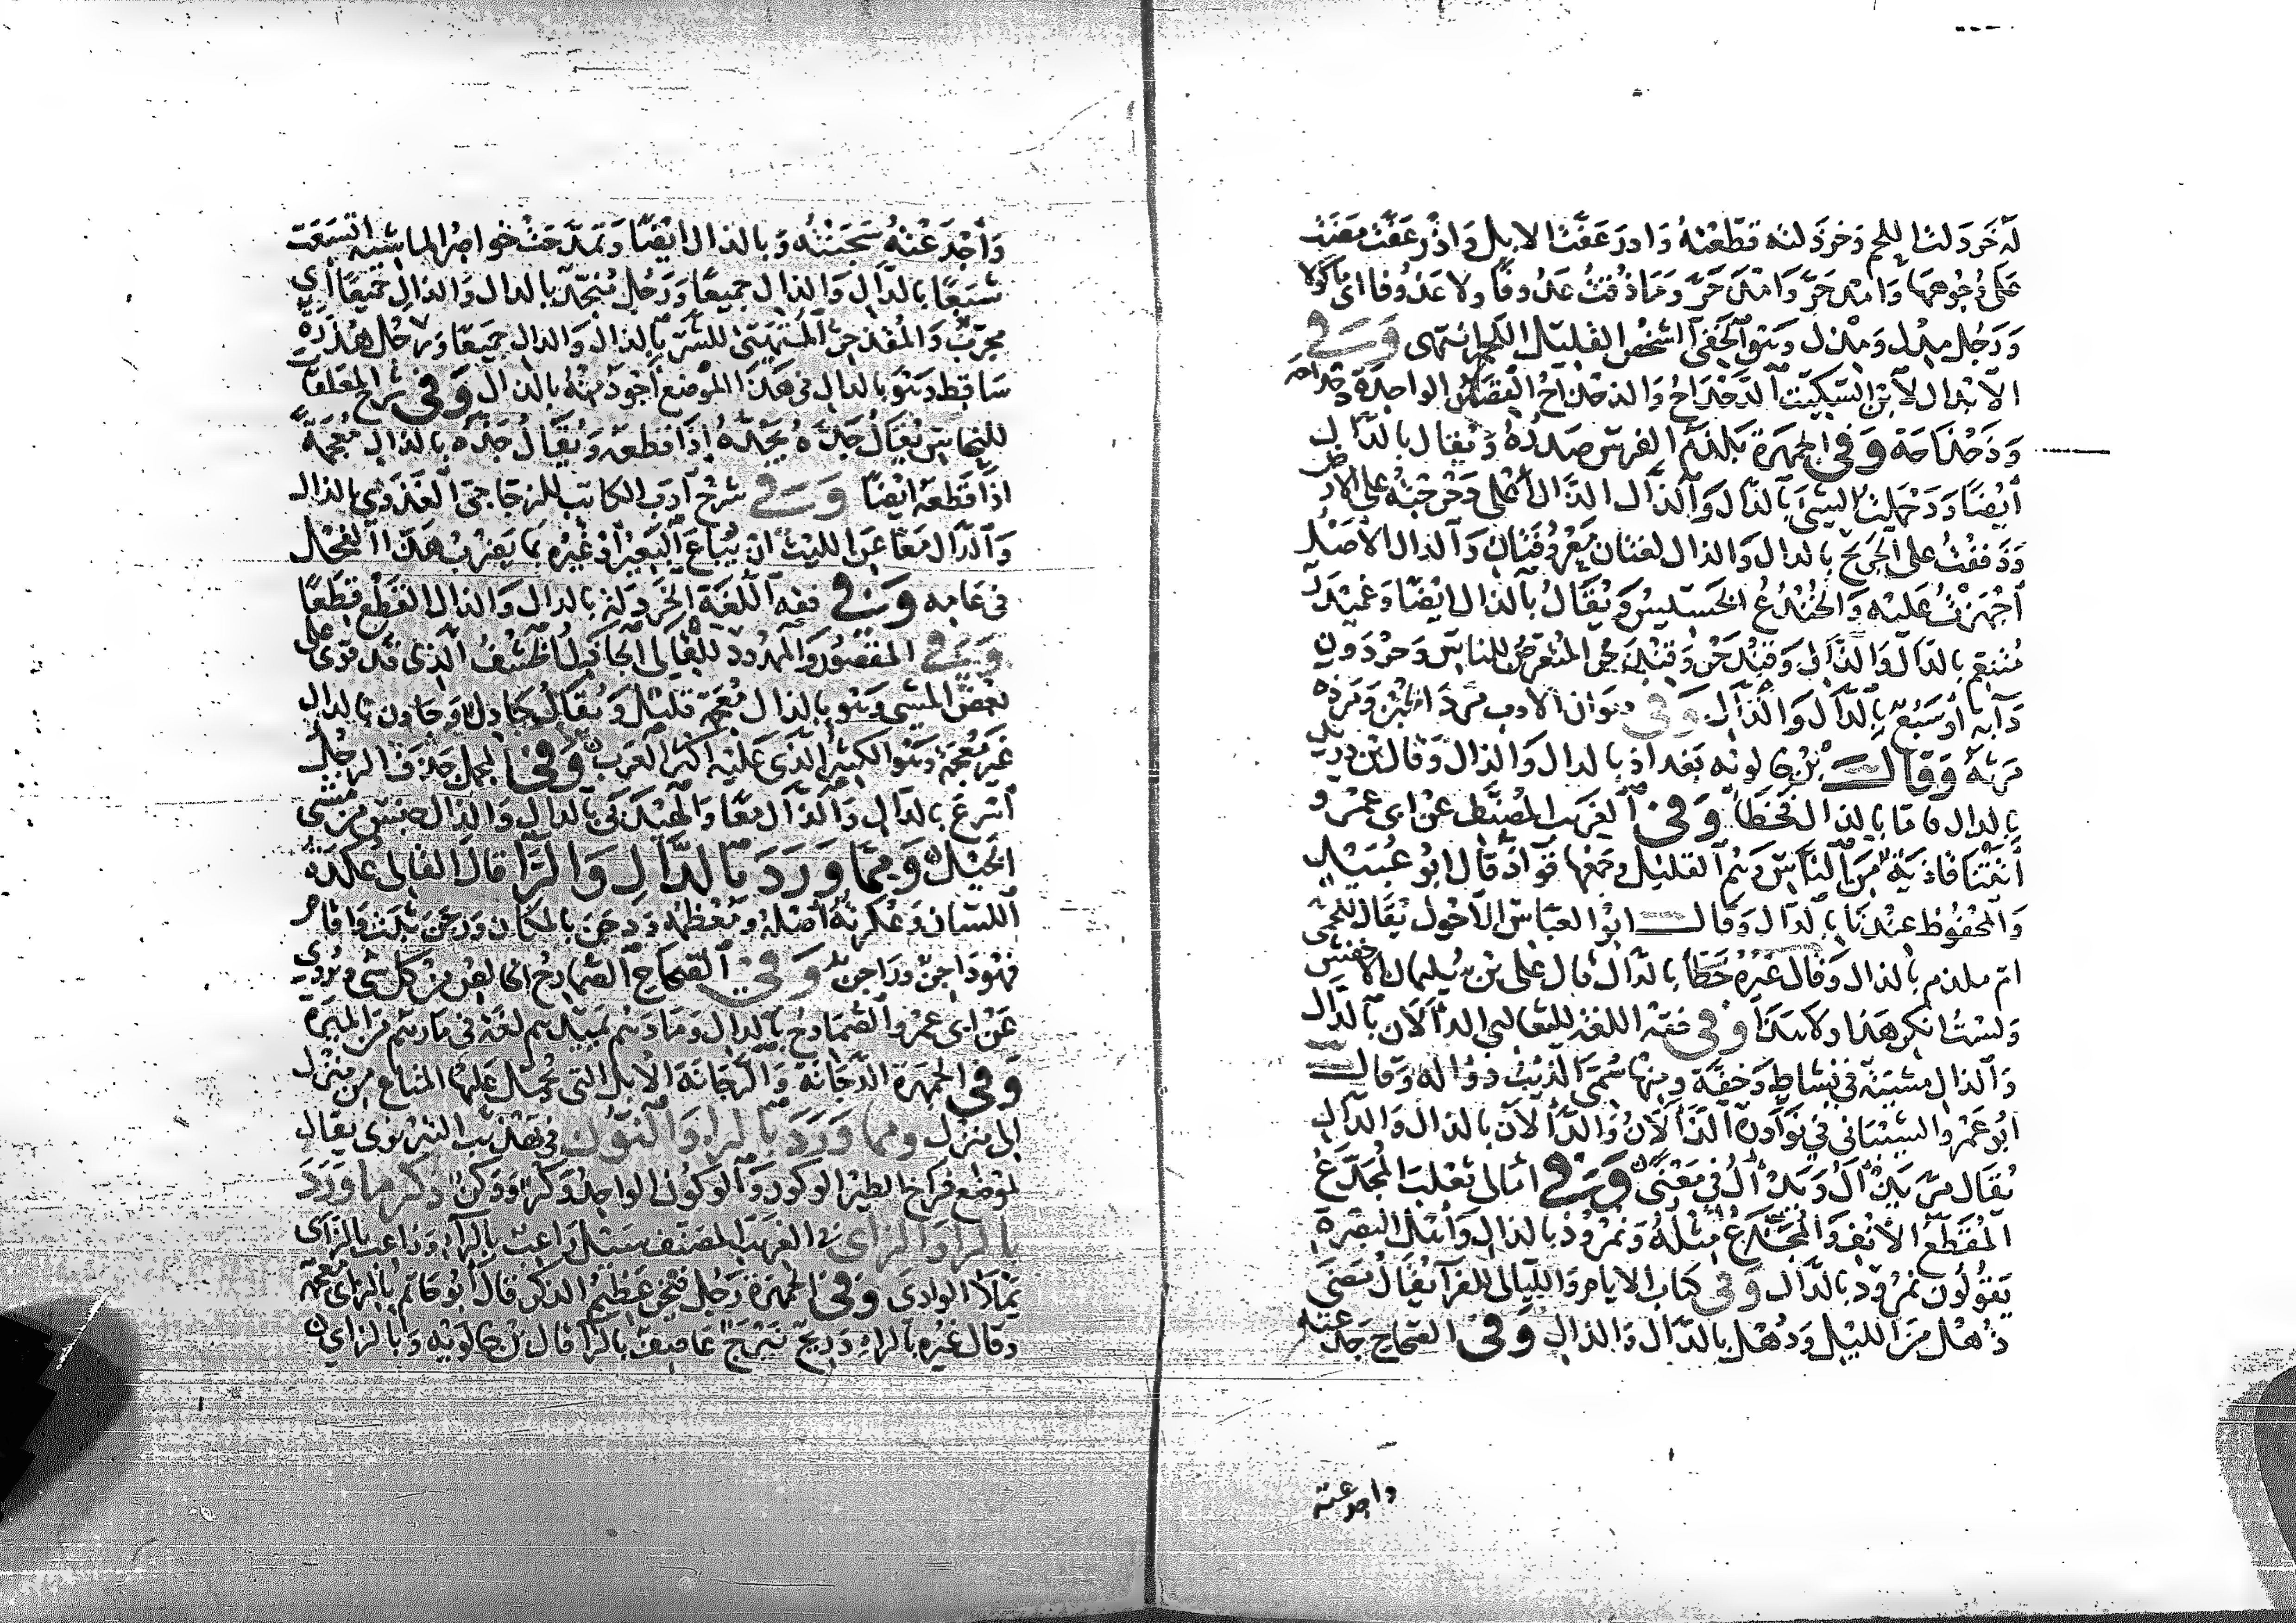 له خردلت اللحم وخرذلته قطعته وادرعفت الابل واذرعفت مضت
على وجوهها وامدحر وامذحر وما ذقت عدوفا ولا عذوفا اى ماكولا
ورجل مدل ومذل وهو الخفى الشخص القليل اللحم انتهى وفى
الابدال لابن السكيت الدحداح والذحذاح القصار الواحدة
وذحذاحة وفى الجمهرة بلذم الفرس صدره ويقال بالدال
ايضا ودحملت الشئ بالدال والذال الدال اعلى دحرجته على الارض
وذففت على الجريح بالدال والذال لغتان معروفتان والذال الاصل
اجهزت عليه والخندع الخسيس ويقال بالذال ايضا وغميدر
متنعم بالدال والذال وقندحر وقنذحر المتعرض للناس وحردون
دابة او سبع بالدال والذال وفى ديوان الادب مرد الخبز ومرذه
مرثه وقال بن خالويه بغداذ بالدال والذال وقال بن دريد
بالدال فاما بالذال فخطأ وفى الغريب المصنف عن ابى عمرو
أتتنا قاذية من الناس وهم القليل وجمعها قواذ قال ابو عبيد
والمحفوظ عندنا بالدال وقال ابو العباس الاحول يقال للحمى
ام ملذم بالذال وقال غيره خطأ بالدال قال على بن سليمان الاخفش
ولست انكر هذا ولا هذا وفى فقه اللغة للثعالبى الدألان بالدال
والذال مشية فى نشاط وخفة ومنها سمى الذيب ذؤالة وقال
ابو عمرو الشيبانى فى نوادره الذألان والدألان بالذال والدال
يقال مر يدأل ويذأل فى معنى وفى امالى ثعلب المجدع
المقطع الانف والمجذع مثله ونمرود بالدال واهل البصرة
يقولون نمروذ بالذال وفى كتاب الايام والليالى للفرا يقال مضى
ذهل من الليل ودهل بالدال والذال وفى الصحاح جدعته
واجدعته
واجدعته سجنته وبالذال ايضا وتمدحت خواصر الماشية اتسعت
شبعا بالدال والذال جميعا ورجل منجد بالدال والذال جميعا اى
مجرب والمقذحر المتهيئ للشر بالذال والدال جميعا ورجل هذرة
ساقط وهو بالدال فى هذا الموضع اجود منه بالذال وفى شرح المعلقات
للنحاس يقال جده يجده اذا قطعه ويقال جذه بالذال معجمة
اذا قطعه ايضا وفى شرح ادب الكاتب للزجاجى الغذوى بالذال
والدال معا عن الليث ان يباع البعير او غيره بما يضرب هذا الفحل
فى عامه وفى فقه اللغة الخردلة بالدال والذال القطع قطعا
وفى المقصور والممدود للقالى الجادل الخشف الذى قد قوى على
بعض المشى وهو بالذال معجمة قليل ويقال جادل وجادن بالدال
غير معجمة وهو الكثير الذى عليه اكثر العرب وفى المجمل جدف الرجل
اسرع بالدال والذال معا والهيدبى بالدال والذال جنس من مشى
الخيل ومما ورد بالدال والرا قال القالى عكدة
اللسان وعكرته اصله ومعظمه ودجن بالمكان ورجن ثبت واقام
فهو داجن وراجن وفى الصحاح الصمادح الخالص من كل شئ ويروى
عن ابى عمرو الصمادح بالدال ومادهم يميدهم لغة فى مارهم من الميرة
وفى الجمهرة الدجانة والرجانة الابل التى تحمل عليها المتاع من منزل
الى منزل ومما ورد بالرا والنون فى تهذيب التبريزى يقال
لموضع فراخ الطير الوكور والوكون الواحد وكر ووكن ذكر ما ورد
بالرا والزاى فى الغريب المصنف سيل راعب بالرا وزاعب بالزاى
يملا الوادى وفى الجمهرة رجل فيخر عظيم الذكر قال ابو حاتم بالزاى معجمة
وقال غيره بالراء وريح نيرج عاصف بالرا قال بن خالويه وبالزاى